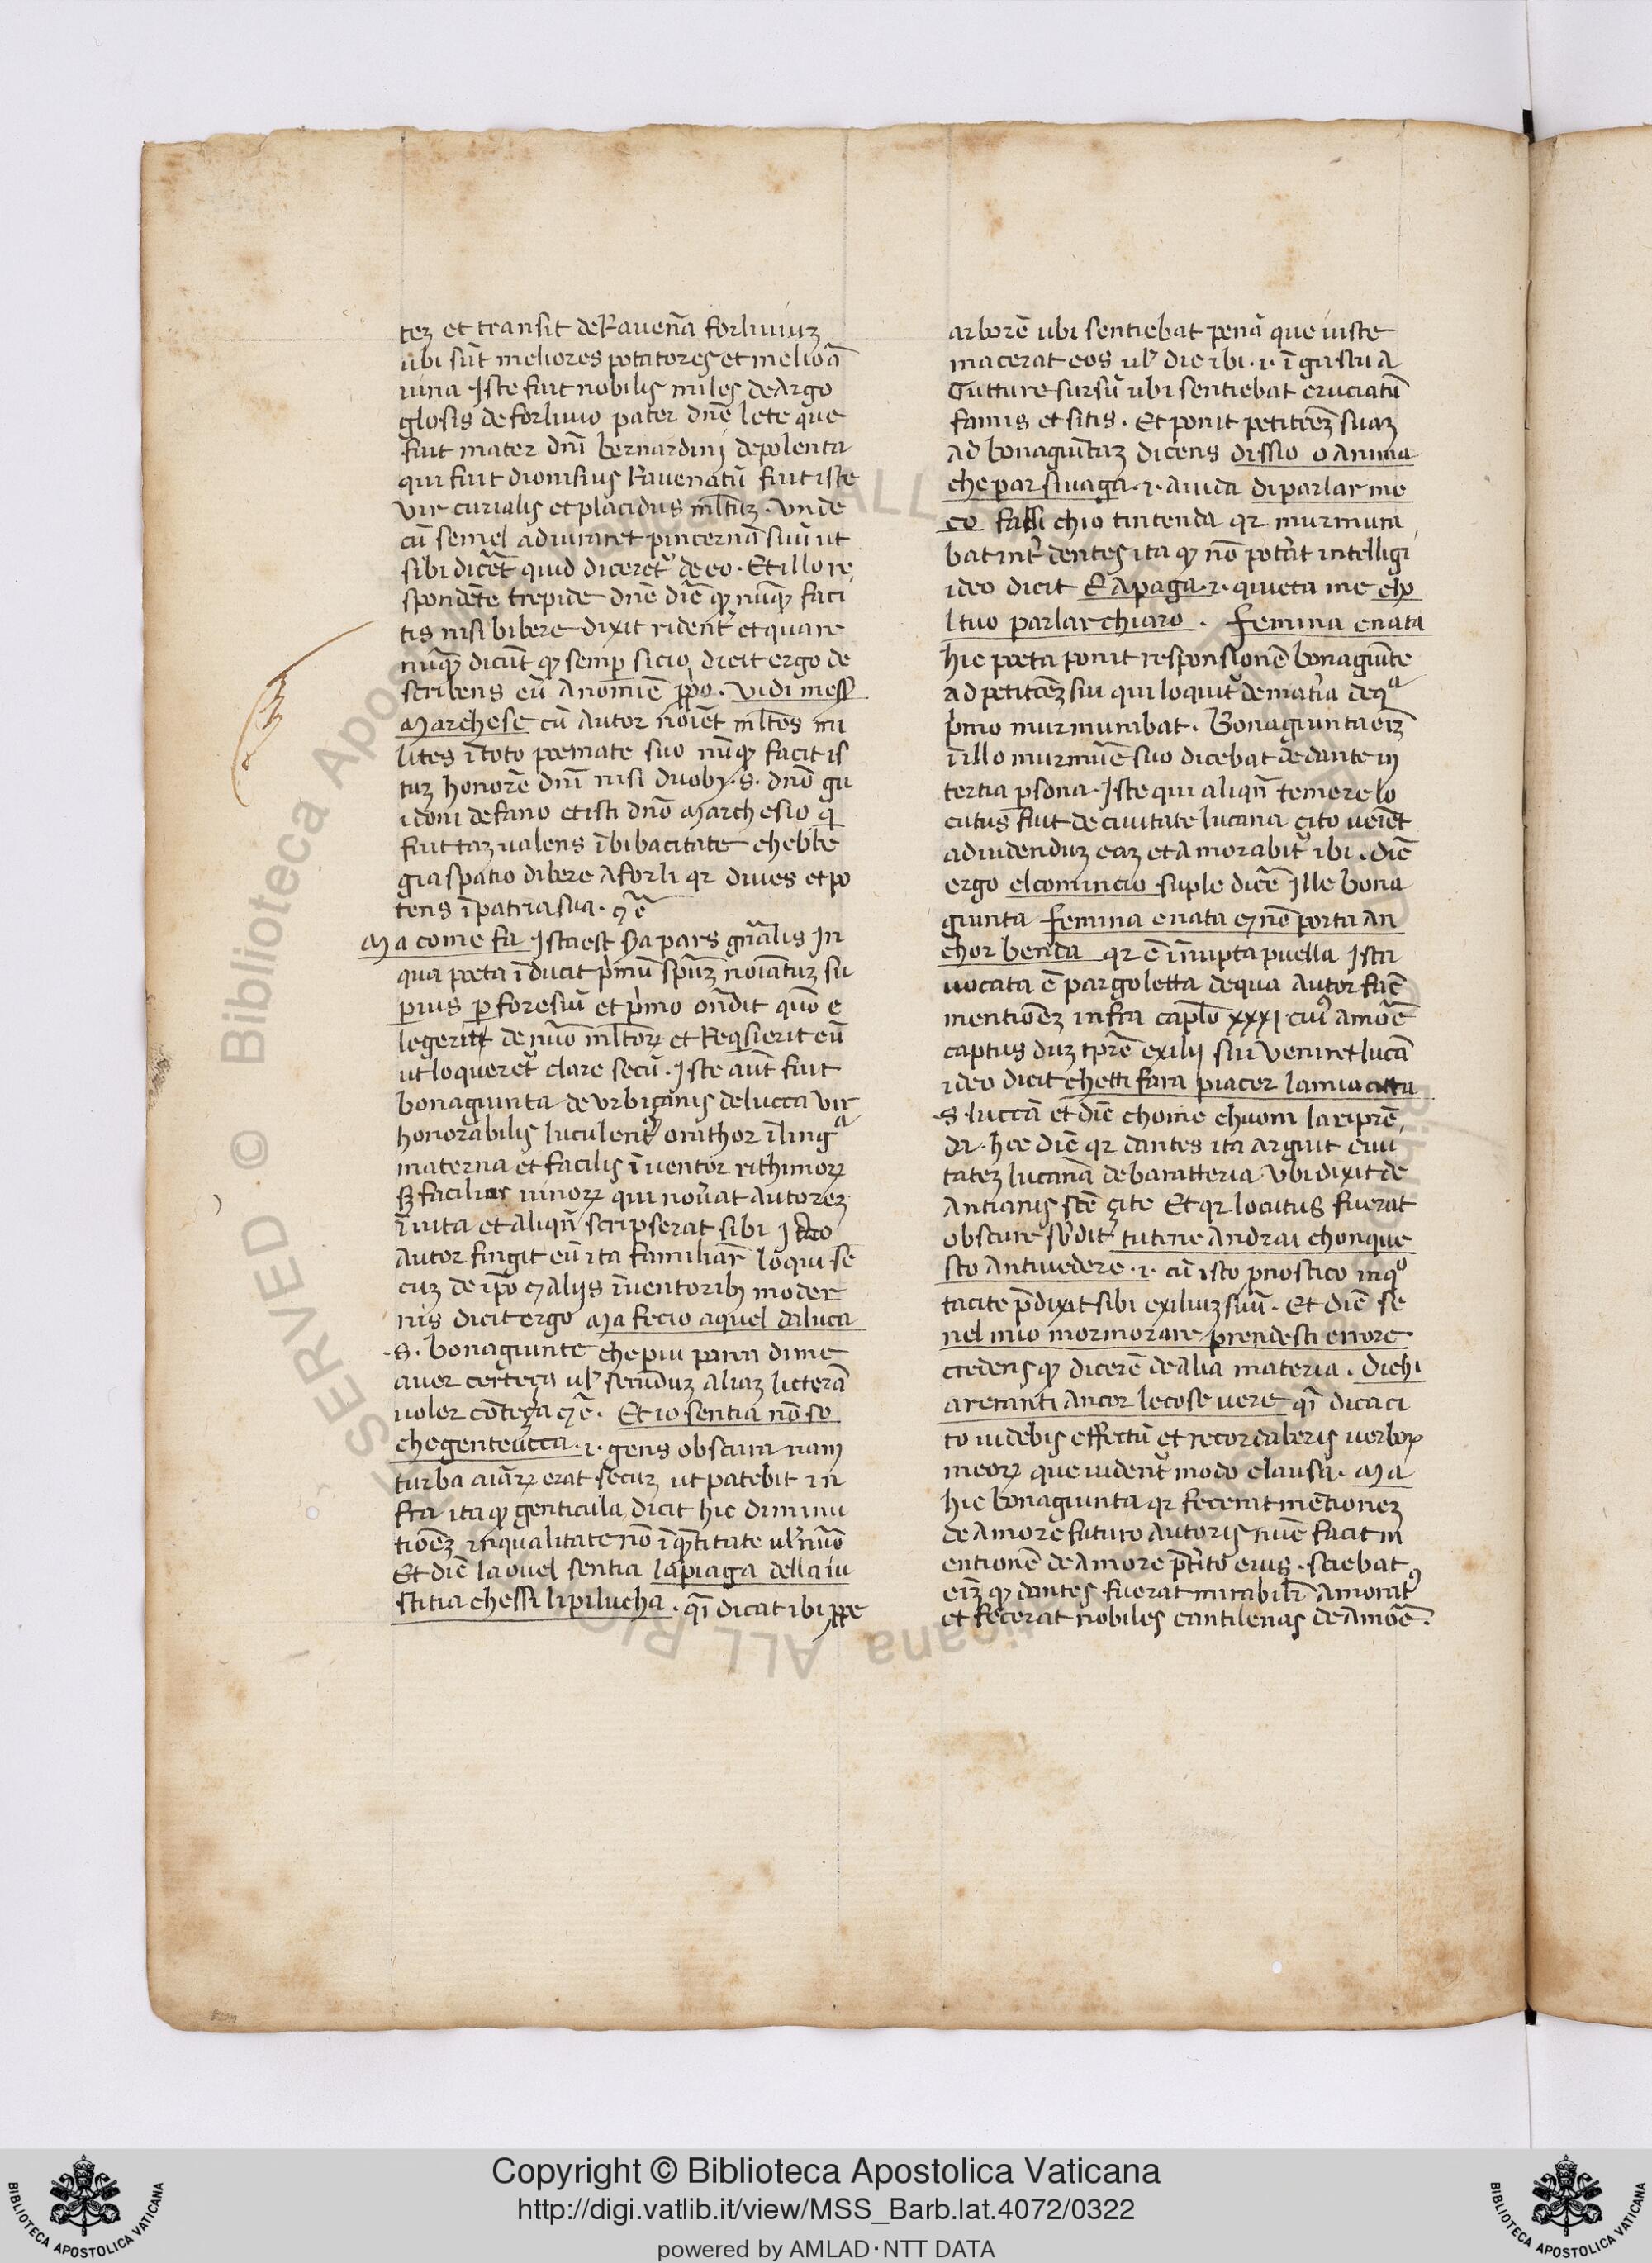 teʒ et transit de Rauen̄a forliuiuʒ
ubi sūt meliores potatores et melioā
uina . Iste fuit nobilis miles de Argo
glosis de forliuio pater dn̄e lete que
fuit mater dn̄i bernardinj depolenta
qui fuit dionisius Rauenatū fuit iste
vir curialis et placidus ml̄tuʒ . vnde
cū semel adiuraret pincernā suū ut
sibi dicēt quid diceret᷑ de eo . Et illo re
spondēte trepide dn̄e diēt ꝙ nūqꝫ faci
tis nisi bibere dixit ridenť et quare
nūqꝫ dicūt ꝙ semꝑ sicio dicit ergo de
scribens eū a nomīe ꝓpo . vidi messẽ
Marchese cū autor noīet ml̄tos mi
lites ī toto poemate suo nūqꝫ facit is
tuʒ honorē dn̄i nisi duobꝫ . s . dn̄o gu
idoni de fano et isti dn̄o Marchesio q̄
fuit taʒ ualens ī bibacitate chebbe
gia spatio di bere a forli qr diues et po
tens ī patria sua . ⁊c̄
Ma come fa Ista est ꝫa pars gn̄alis In
qua poeta īducit pͥmū spūʒ noīatuʒ su
perius ꝑ foresiū et pͥmo on̄dit quō e
legerit de nūo ml̄toꝝ et reqͥsierit eū
ut loqueret᷑ clare secū . Iste aūt fuit
bonagiunta de vrbiçanis de lucca vir
honorabilis luculent᷒ orathor ī lingᵃ
materna et facilis īuentor rithimoꝝ
sꝫ facilior uinoꝝ qui nou̾at autoreʒ
ī uita et aliqn̄ scripserat sibi Ideo
autor fingit eū ita familiar̄ loqui se
cuʒ de ip̄o ⁊ alijs īuentoribꝫ moder
nis dicit ergo Ma fecio aquel daluca
. s . bonagiunte che piu parea di me
auer certeça ul̾ secunduʒ aliaʒ litterā
uoler cōteça ⁊c̄ . Et io sentia nō so
che gentucca . i . gens obscura nam
turba aīaꝝ erat secuʒ ut patebit in
fra ita ꝙ genticula dicit hic diminu
tiōeʒ in qualitate nō ī qͣntitate ul̾ nūo
Et diēt la ouel sentia la piaga della iu
stitia chessi li pilucha . qͣi dicat ibi ꝓpe
arborē ubi sentiebat penā que iuste
macerat eos ul̾ dic ibi . i . ī gustu a
Gutture sursū ubi sentiebat cruciatū
famis et sitis . Et ponit petitōeʒ suaʒ
ad bonagiūtaʒ dicens dissio o anima
che par si uaga . i . auida di parlar me
co fassi chio tintenda qr murmura
bat int̾ dentes ita ꝙ nō pot̾at intelligi
ideo dicit E apaga . i . quieta me e ho
l tuo parlar chiaro . Femina e nata
hic poeta ponit responsionē bonagiūte
ad petitōeʒ sui qui loquit᷑ de mat̾ia de qᵃ
pͥmo murmurabat . Bonagiunta eīʒ
ī illo murmuē suo dicebat de dante in
tertia ꝑsona . Iste qui aliqn̄ temere lo
cutus fuit de ciuitate lucana çito ueniēt
ad uidenduʒ eaʒ et amorabit᷑ ibi . diēt
ergo el comincio suple dicē Ille bona
giunta femina e nata ⁊ nō porta an
chor benda qr ē īnupta puella Ista
uocata ē pargoletta de qua autor faēt
mentiōeʒ infra capl̄o xxxi cuiꝰ amoē
captus duʒ tp̄re exilij sui ueniret lucā
ideo dicit chetti fara piacer la mia citta
. s . luccā et diēt chome chuom la riprē
da . hoc diēt qr dantes ita arguit ciui
tateʒ lucanā de baratteria ubi dixit de
antianis scē çite Et qr locutus fuerat
obscure sb̾dit tu tene andrai chonque
sto antiuedere . i . cū isto pͥnostico in qᵒ
tacite p̄dixit sibi exiliuʒ suū . Et diēt se
nel mio mormorare prendesti errore
credens ꝙ dicerē de alia materia . Dichi
areranti ancor le cose uere qͣi dicat ci
to uidebis effectū et recordaberis uerboꝝ
meoꝝ que uident᷑ modo clausa . Ma
hic bonagiunta qr fecerat mētioneʒ
de amore futuro autoris nūc facit m
entionē de amore p̄terito eius . sciebat
eīʒ ꝙ dantes fuerat mirabilit᷑ amoratꝰ
et fecerat nobiles cantilenas de amoē .
© Biblioteca Apostolica Vaticana ALL RIGHTS RESERVED
Copyright © Biblioteca Apostolica Vaticana
http://digi.vatlib.it/view/MSS_Barb.lat.4072/0322
powered by AMLAD·NTT DATA
BIBLIOTECA APOSTOLICA VATICANA
BIBLIOTECA APOSTOLICA VATICANA